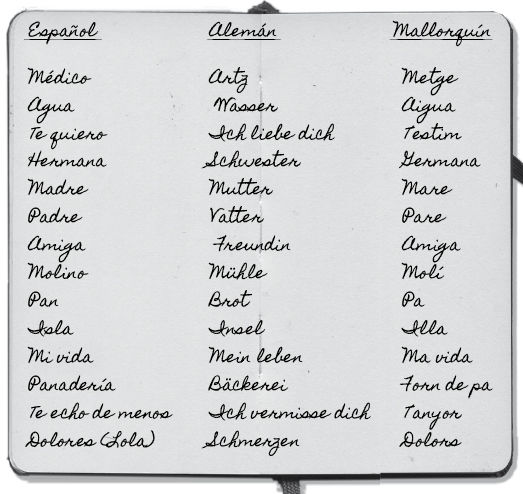 Español Alemán Mallorquín
Médico Artz Metge
Agua Wasser Aigua
Te quiero Ich liebe dich Testim
Hermana Schwester Germana
Madre Mutter Mare
Padre Vatter Pare
Amiga Freundin Amiga
Molino Mühle Molí
Pan Brot Pa
Isla Insel Illa
Mi vida Mein leben Ma vida
Panadería Bäckerei Forn de pa
Te echo de menos Ich vermisse dich Tanyor
Dolores (Lola) Schmerzen Dolors